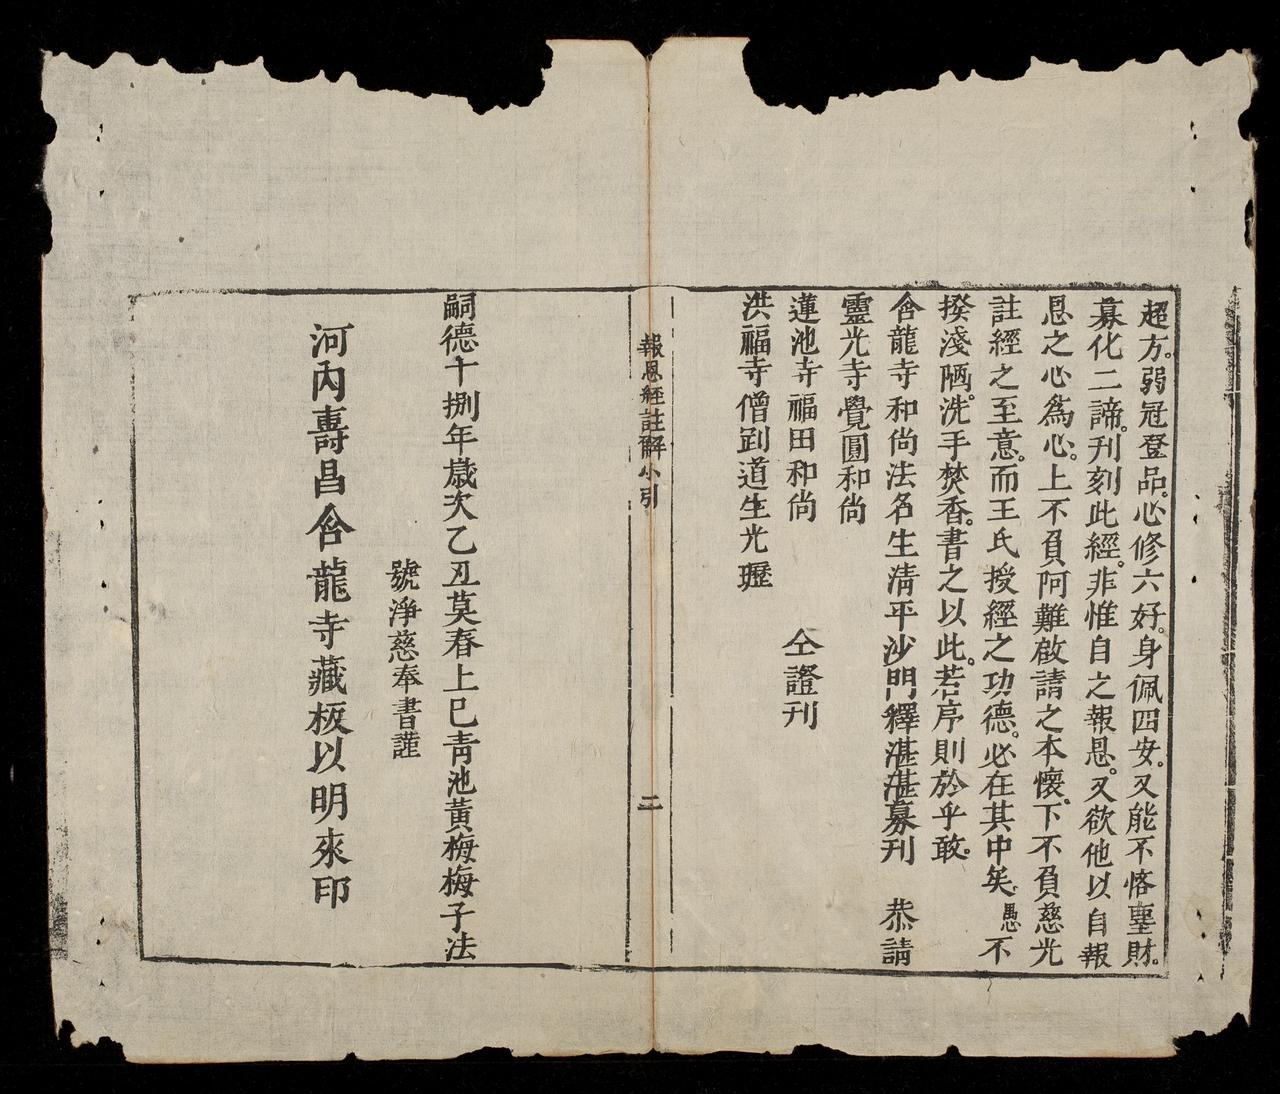 超方。弱冠登品。必修六好。身佩四安。又能不悋塵財。
募化二諦。刊刻此經。非惟自之報恩。又欲他以自報
恩之心為心。上不負阿難啟請之本懷。下不負慈光
註經之至意。而王氏授經之功德。必在其中矣。愚不
揆淺陋。洗手焚香。書之以此。若序則於乎敢。
含龍寺和尚法名生清平沙門釋湛湛募刊　恭請
靈光寺覺圓和尚
蓮池寺福田和尚　仝證刊
洪福寺僧副道生光瓑
報恩經註解小引　二
嗣德十捌年歲次乙丑莫春上巳青池黃梅梅子法
號淨慈奉書謹
河內壽昌含龍寺藏板以明來印